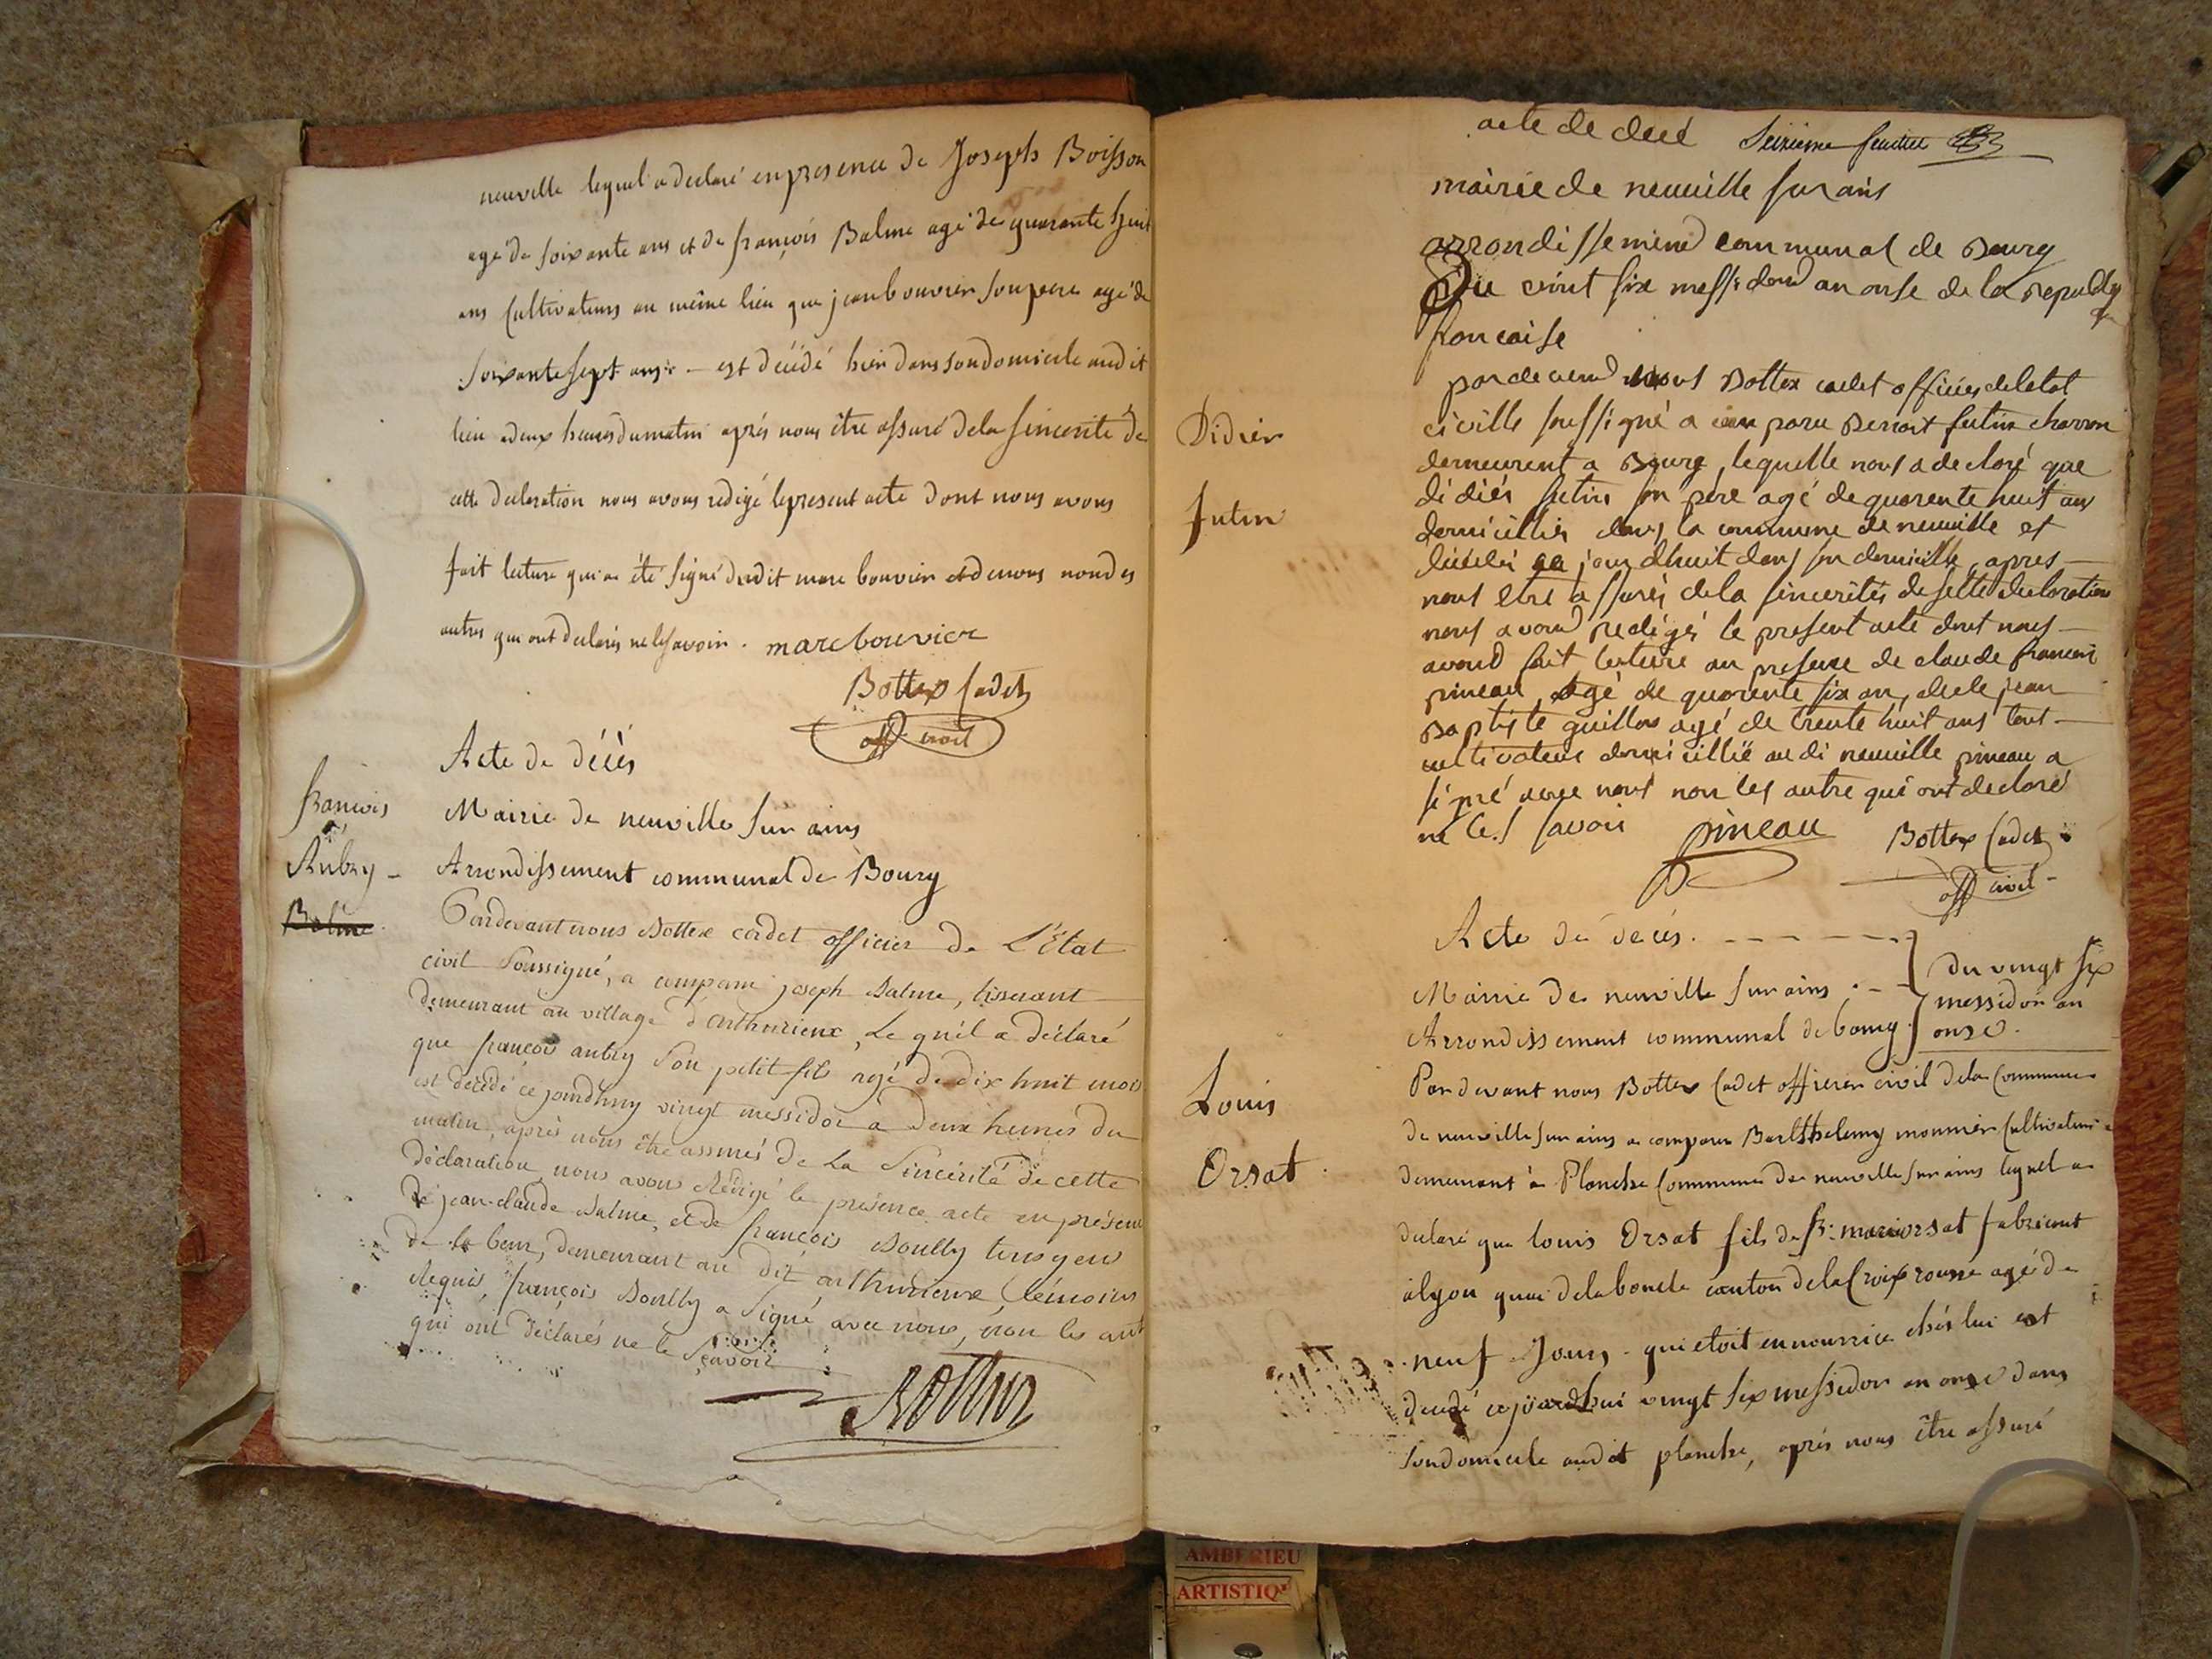 neuville lequel a declaré en presence de Joseph Boisson
agé de soixante ans et de françois Balme agé de quarante huit
ans Cultivateurs au même lieu que jean bouvier son pere agé de
soixante sept ans - est décédé hier dans son domicile audit
lieu a deux heures du matin après nous être assuré de la sincerité de
cette declaration nous avons redigé le present acte dont nous avons
fait lecture qui a été signé dudit marc bouvier et de nous non des
autres qui ont declarés ne le savoir . marc bouvier
Bottex Cadet
off. civil
Acte de décès
françois
Aubry -
Balme
Mairie de neuville sur ains
Arrondissement communal de Bourg
Pardevant nous Bottex cadet officier de L'État
civil Soussigné, a comparu joseph Balme, tisserant
demeurant au village d'arthurieux, Le quel a déclaré
que françois aubry Son petit fils agé de dix huit mois
est décédé ce jourdhuy vingt messidor à deux heures du
matin, après nous être assurés de La Sincérité de cette
déclaration nous avons Rédigé le présence acte en présence
de jean-claude Balme, et de françois Boully
demeurant au dit arthurieux, témoins
Requis, françois Boully a Signé avec nous, non les aut
qui ont déclarés ne le Sçavoir
acte de decé Seizieme feuillet
mairie de neuville sur ains
arrondissement communal de Bourg
Du vint six messidord an onse de la republiq
francaise
pardevend nous Bottex cadet officier de letat
civille soussigné a comparu Benoit futin charron
demeurent a Bourg, lequelle nous a decloré que
didiér futin son pére agé de quarente huit ans
domicillié dans la commune de neuville et
décédé ce jour dhuit dans son domicille, apres
nous etre assurés de la sincerités de sette decloration
nous avond redigés le present acte dont nous
avond fait lecture au presence de claude francois
pineau, agé de quarente six an, de le jean
Baptiste guillon agé de trente huit ans tout
cultivateur domicillié au di neuville pineau a
signé avec nous non les autre qui ont decloré
ne les savoir pineau Bottex Cadet
off civil -
Didier
futin
Acte de decés. - - - - - -
Mairie de neuville sur ains . -
Arrondissement communal de bourg .
du vingt six
messidor an
onze .
Louis
Orsat
Pardevant nous Bottex Cadet officier civil de la Commune
de neuville sur ains a comparu Barthelemy monnier Cultivateur
demeurant à Planche Commune de neuville sur ains lequel a
declaré que louis Orsat fils de fs: marie orsat fabricant
a lyon quai de la boucle canton de la Croix rousse agé de
neuf Jours - qui etoit en nourrice chés lui est
decedé cejourdhui vingt six messidor an onze dans
son domicile audit planche, après nous être assuré
AMBERIEU
ARTISTIQ